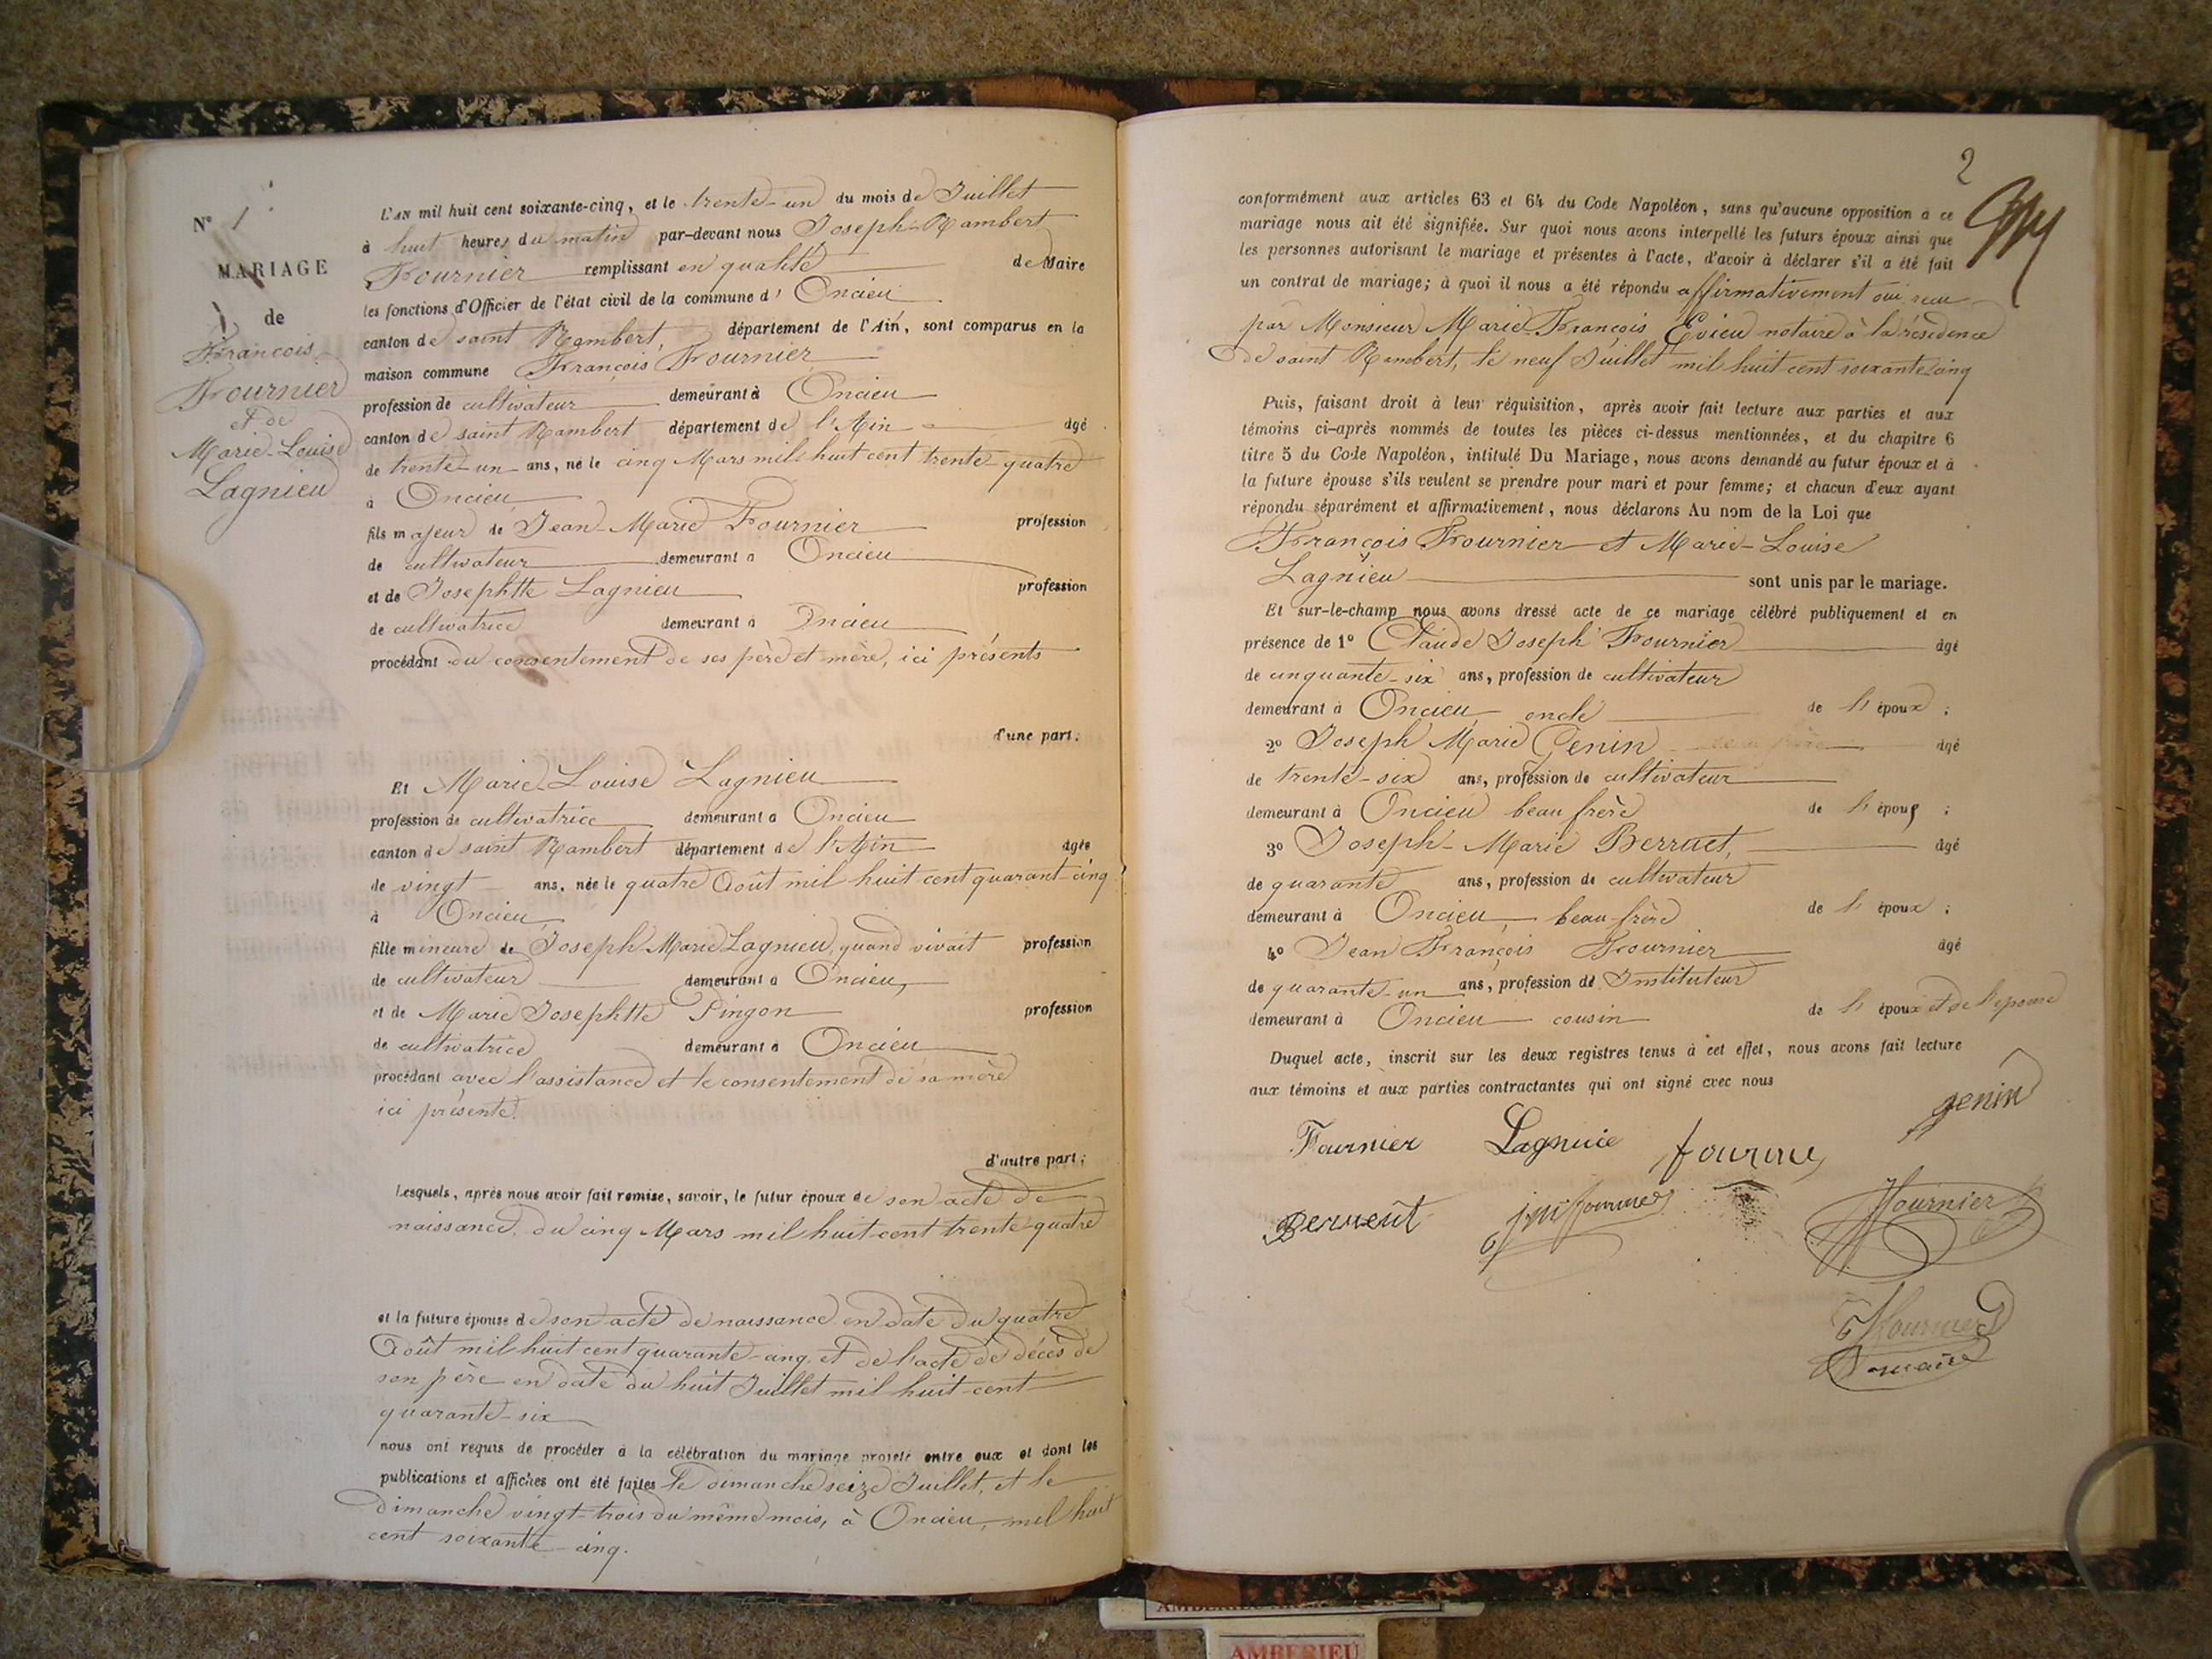 N° 1
MARIAGE
de
François
Fournier
et de
Marie-Louise
Lagnieu
L'AN mil huit cent soixante-cinq, et le trente-un du mois de Juillet
à huit heures du matin par-devant nous Joseph-Rambert
Fournier remplissant en qualité de Maire
les fonctions d'Officier de l'état civil de la commune d' Oncieu
canton de saint Rambert, département de l'Ain, sont comparus en la
maison commune François Fournier
profession de cultivateur demeurant à Oncieu
canton de saint Rambert département de l'Ain âgé
de trente-un ans, né le cinq Mars mil huit cent trente-quatre
à Oncieu
fils majeur de Jean-Marie Fournier profession
de cultivateur demeurant à Oncieu
et de Josephtte Lagnieu profession
de cultivatrice demeurant à Oncieu
procédant du consentement de ses père et mère, ici présents
d'une part;
Et Marie Louise Lagnieu
profession de cultivatrice demeurant à Oncieu
canton de saint Rambert département de l'Ain âgée
de vingt ans, née le quatre Août mil huit cent quarant-cinq
à Oncieu
fille mineure de Joseph Marie Lagnieu, quand vivait profession
de cultivateur demeurant à Oncieu,
et de Marie Josephtte Pingon profession
de cultivatrice demeurant à Oncieu
procédant avec l'assistance et le consentement de sa mère
ici présente.
d'autre part;
Lesquels, après nous avoir fait remise, savoir, le futur époux de son acte de
naissance, du cinq Mars mil huit-cent trente-quatre
et la future épouse de son acte de naissance en date du quatre
Août mil huit cent quarante-cinq et de l'acte de décès de
son père en date du huit Juillet mil huit-cent
quarante-six
nous ont requis de procéder à la célébration du mariage projeté entre eux et dont les
publications et affiches ont été faites le dimanche seize Juillet, et le
dimanche vingt-trois du même mois, à Oncieu, mil huit
cent soixante-cinq.
2
conformément aux articles 63 et 64 du Code Napoléon, sans qu'aucune opposition à ce
mariage nous ait été signifiée. Sur quoi nous avons interpellé les futurs époux ainsi que
les personnes autorisant le mariage et présentes à l'acte, d'avoir à déclarer s'il a été fait
un contrat de mariage; à quoi il nous a été répondu affirmativement oui, reçu
par Monsieur Marie-François Evieu notaire à la résidence
de saint Rambert, le neuf Juillet mil huit cent soixante cinq
Puis, faisant droit à leur réquisition, après avoir fait lecture aux parties et aux
témoins ci-après nommés de toutes les pièces ci-dessus mentionnées, et du chapitre 6
titre 5 du Code Napoléon, intitulé Du Mariage, nous avons demandé au futur époux et à
la future épouse s'ils veulent se prendre pour mari et pour femme; et chacun d'eux ayant
répondu séparément et affirmativement, nous déclarons Au nom de la Loi que
François Fournier et Marie-Louise
Lagnieu sont unis par le mariage.
Et sur-le-champ nous avons dressé acte de ce mariage célébré publiquement et en
présence de 1° Claude Joseph Fournier âgé
de cinquante-six ans, profession de cultivateur
demeurant à Oncieu oncle de l'époux;
2° Joseph Marie Genin âgé
de trente-six ans, profession de cultivateur
demeurant à Oncieu beau frère de l'époux;
3° Joseph-Marie Berruet, âgé
de quarante ans, profession de cultivateur
demeurant à Oncieu, beau-frère de l'époux;
4° Jean François Fournier âgé
de quarante-un ans, profession de Instituteur
demeurant à Oncieu cousin de l'époux et de l'épouse
Duquel acte, inscrit sur les deux registres tenus à cet effet, nous avons fait lecture
aux témoins et aux parties contractantes qui ont signé avec nous
genin
Fournier Lagnieu
Fournier
AMBERIEU